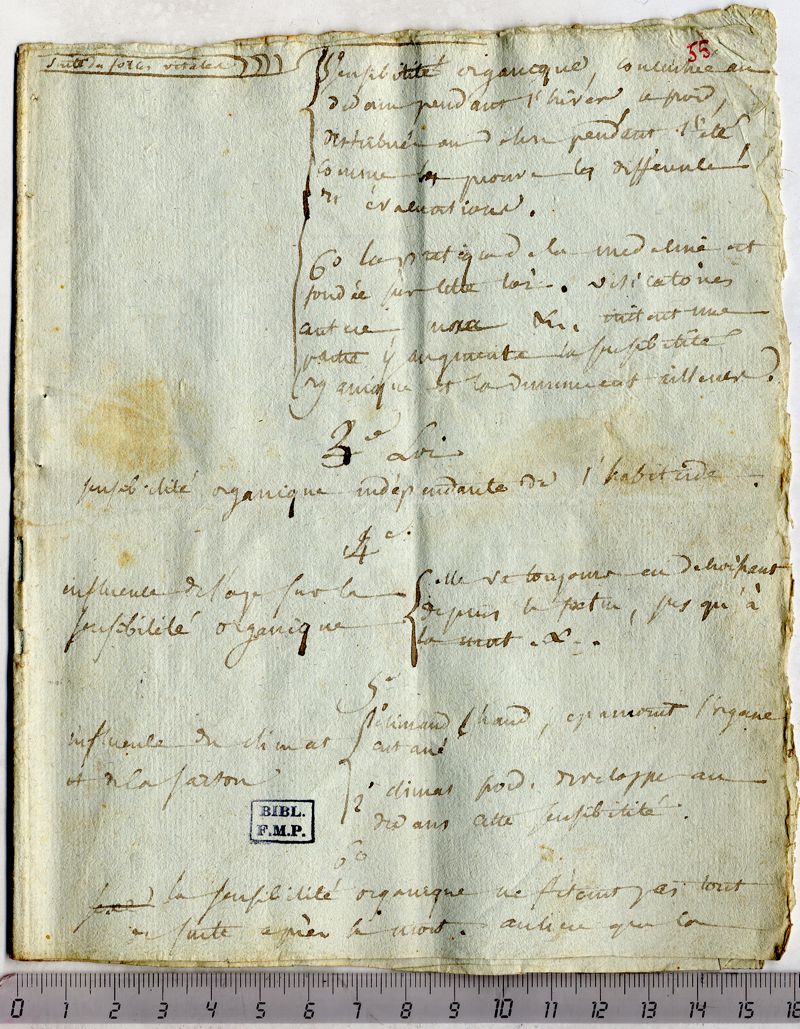 55
suite des forces vitales
sensibilité organicque, concentrée au
dedans pendant l'hiver le froid,
distribuée au dehors pendant l'été
comme le prouve les différentes
évacuations.
6° la pratique de la medecine est
fondée sur cette loi. vesicatoires
moxa &c. irritent une
partie y augmente la sensibilité
organique et la diminuent ailleurs.
3e Loi
sensibilité organique indépendante de l'habitude.
4e
influence de l'age sur la
sensibilité organique
elle va toujours en decroissant
depuis le fœtus, jusqu'à
la mort. &.
5e
influence du climat
et de la saison
1° climat chaud, l'organe
cutané
2° climat froid. developpe au
dedans cette sensibilité.
BIBL.
F.M.P.
6°
la sensibilité organique ne s'éteint pas tout
de suite après la mort. au lieu que la
0 1 2 3 4 5 6 7 8 9 10 11 12 13 14 15 16